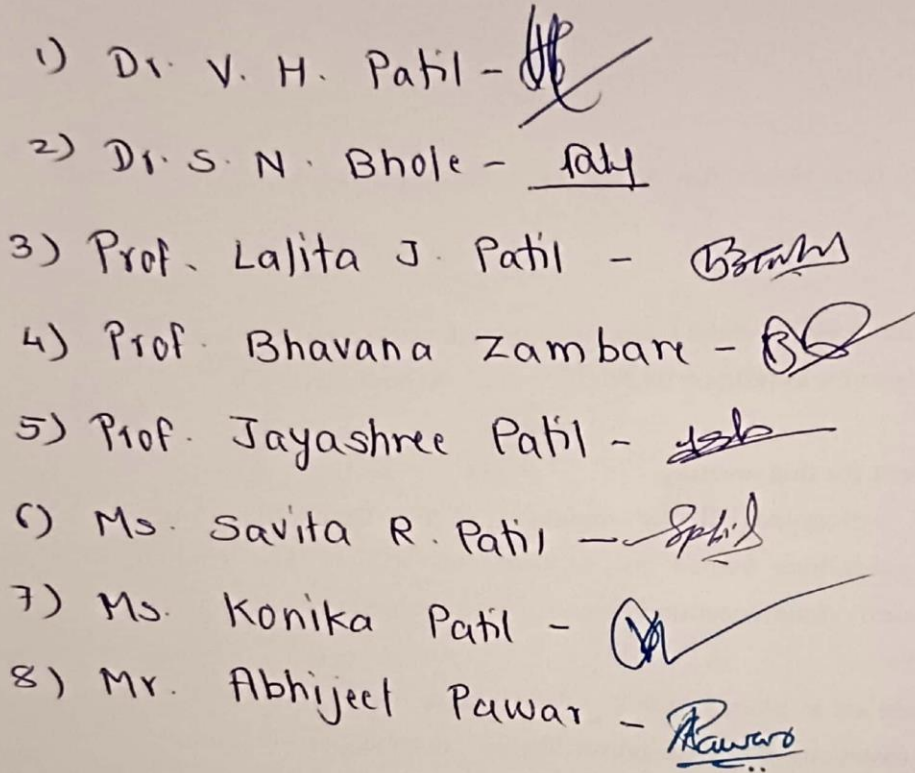 1) Dr. V. H. Patil -
2) Dr. S. N. Bhole -
3) Prof. Lalita J. Patil -
4) Prof. Bhavana Zambare -
5) Prof. Jayashree Patil -
6) Ms. Savita R. Patil -
7) Ms. Konika Patil -
8) Mr. Abhijeet Pawar -